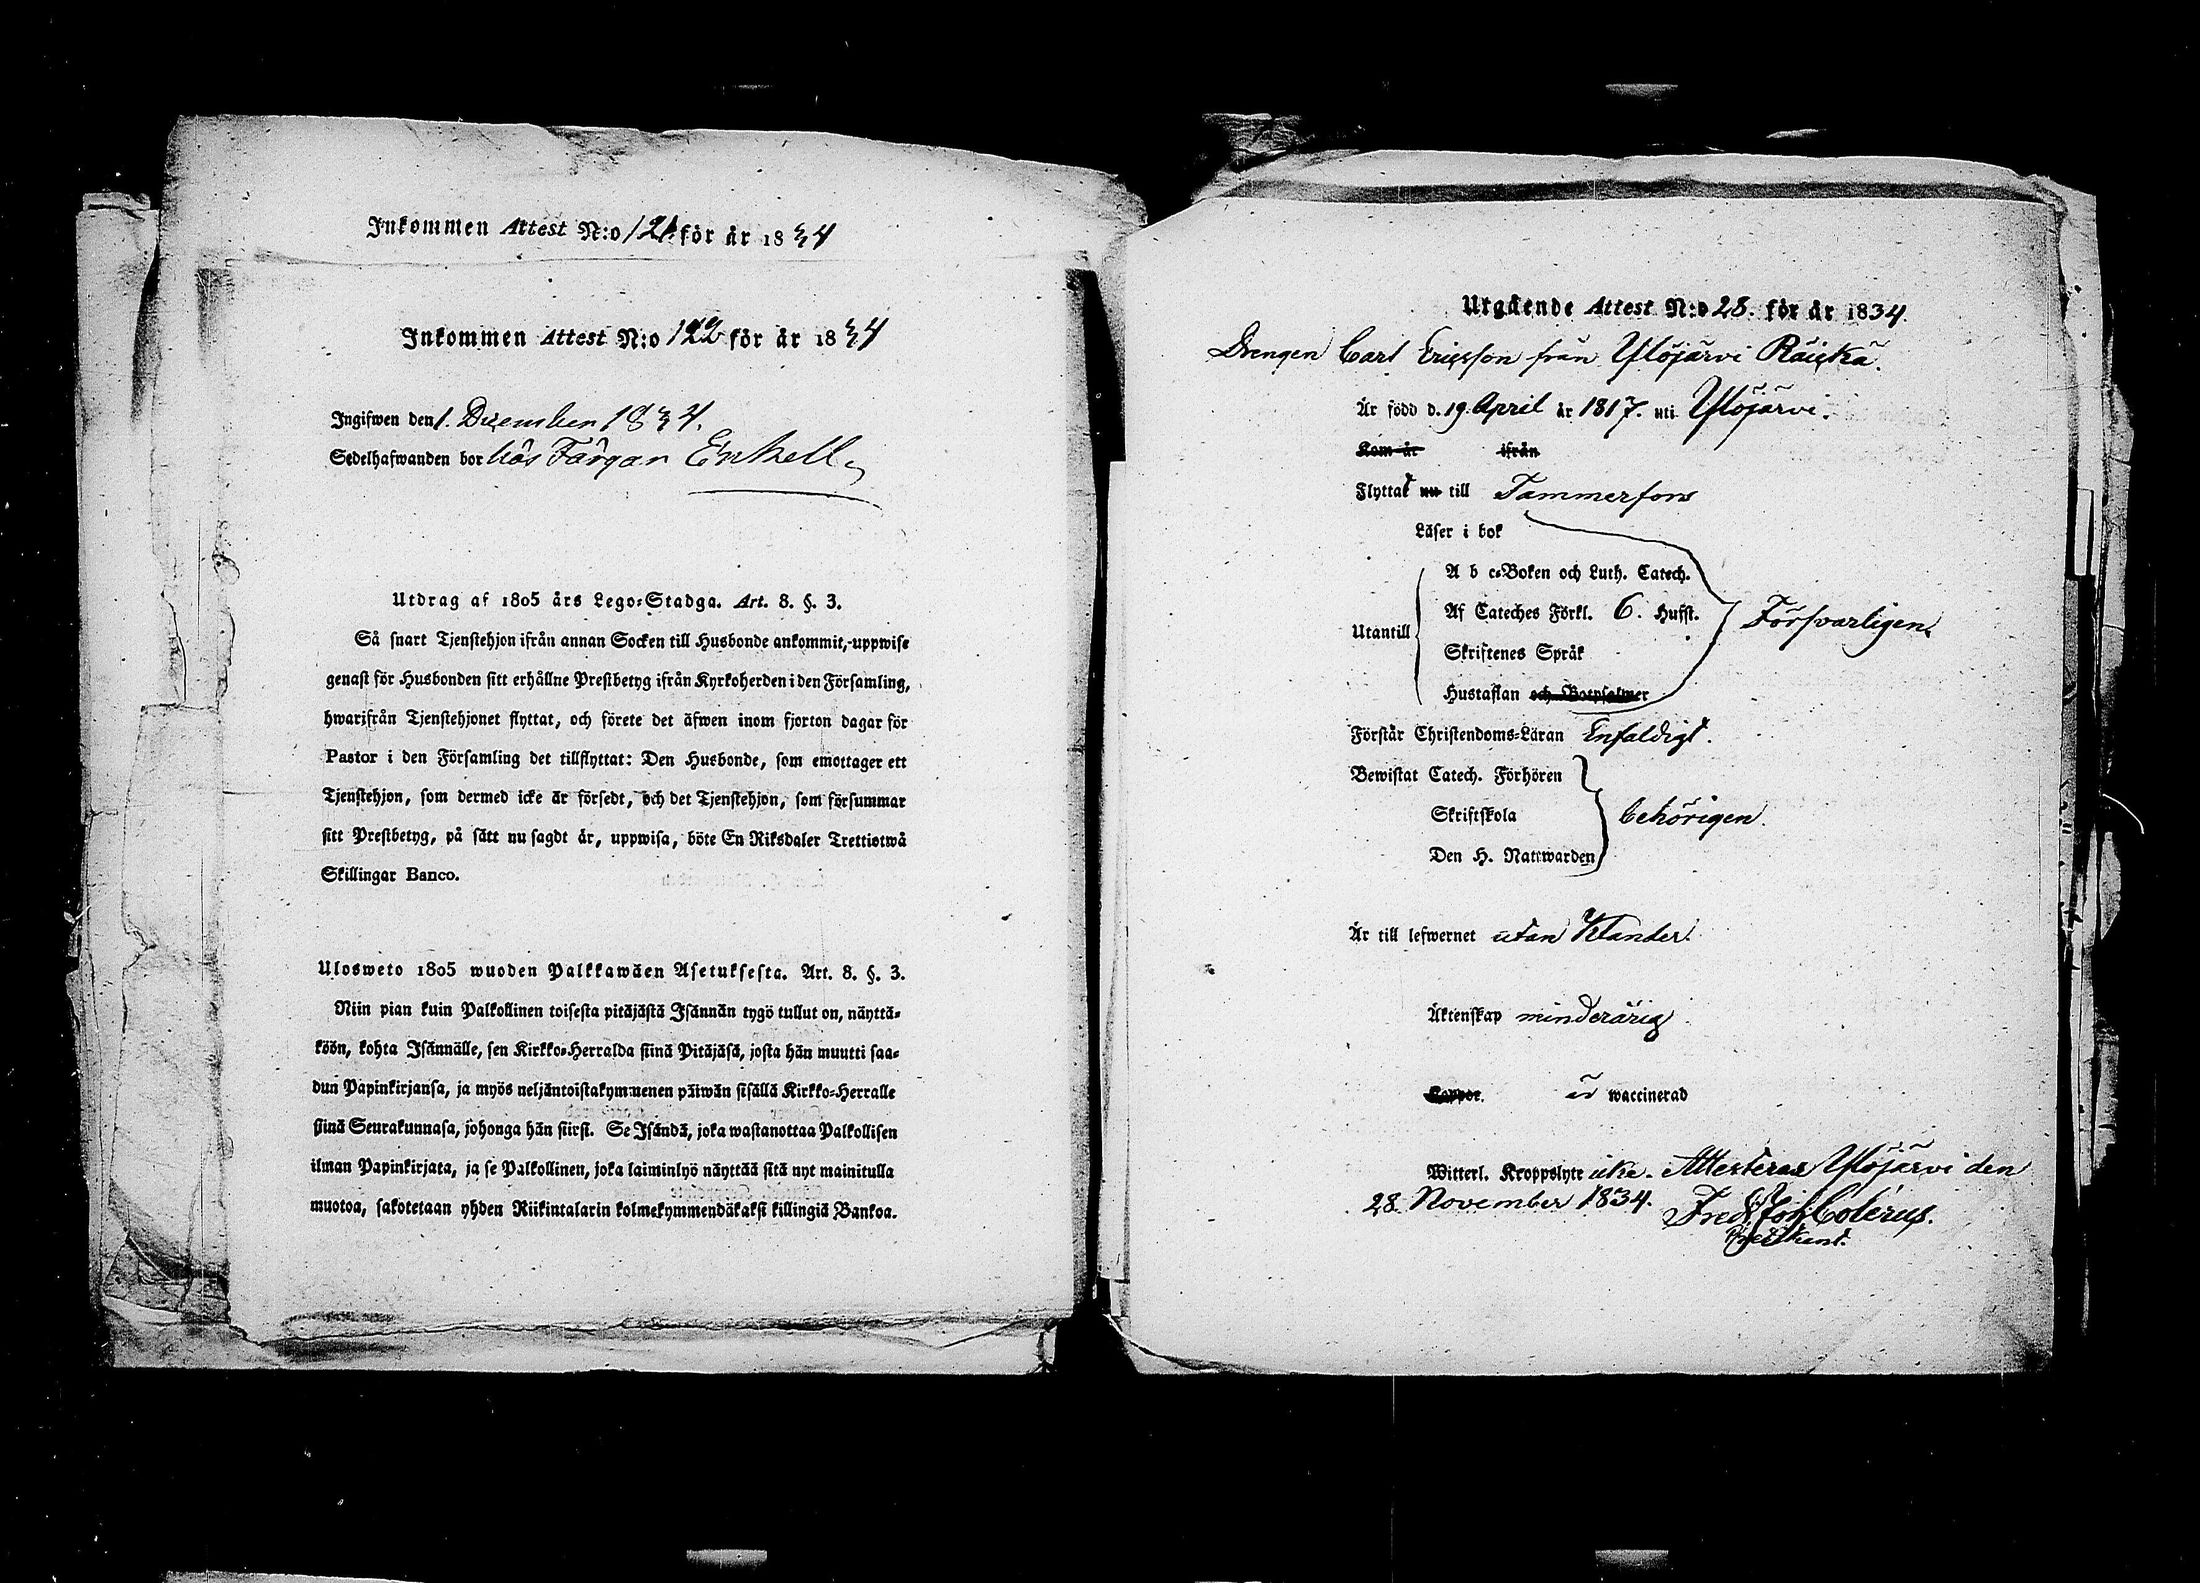 Inkommen Attest N:o 121 för år 1834
Inkommen Attest N:o 122 för år 1834
Ingifwen den 1. December 1834.
Sedelhafwanden bor hos Färgar Enkell
Utdrag af 1805 års Lego-Stadga. Art. 8. §. 3.
Så snart Tjenstehjon ifrån annan Socken till Husbonde ankommit, uppwise
genast för Husbonden sitt erhållne Prestbetyg ifrån Kyrkoherden i den Församling,
hwarifrån Tjenstehjonet flyttat, och förete det äfwen inom fjorton dagar för
Pastor i den Församling det tillflyttat: Den Husbonde, som emottager ett
Tjenstehjon, som dermed icke är försedt, och det Tjenstehjon, som försummar
sitt Prestbetyg, på sätt nu sagdt är, uppwisa, böte En Riksdaler Trettiotwå
Skillingar Banco.
Ulosweto 1805 wuoden Palkkawäen Asetuksesta. Art. 8. §. 3.
Niin pian kuin Palkollinen toisesta pitäjästä Isännän tygö tullut on, näyttä-
köön, kohta Isännälle, sen Kirkko-Herralda siinä Pitäjäsä, josta hän muutti saa-
dun Papinkirjansa, ja myös neljäntoistakymmenen päiwän sisällä Kirkko-Herralle
siinä Seurakunnasa, johonga hän siirsi. Se Isändä, joka wastanottaa Palkollisen
ilman Papinkirjata, ja se Palkollinen, joka laiminlyö näyttää sitä nyt mainitulla
muotoa, sakotetaan yhden Riikintalarin kolmekymmendäkaksi killingiä Bankoa.
Utgående Attest N:o 28. för år 1834.
Drengen Carl Ericsson från Ylöjärvi Räiskä.
Är född d. 19. April år 1817. uti Ylöjärvi.
Kom år ifrån
Flyttat nu till Tammerfors
Läser i bok
A b c-Boken och Luth. Catech.
Af Cateches Förkl. 6. Hufst. Försvarligen.
Utantill
Skriftenes Språk
Hustaflan och Botpsalmer
Förstår Christendoms-Läran Enfaldigt.
Bewistat Catech. Förhören
Skriftskola behörigen.
Den H. Nattwarden
Är till lefwernet utan Klander.
Äktenskap minderårig
Koppor. är waccinerad
Witterl. Kroppslyte icke. Attesteras Ylöjärvi den
28. November 1834. Fred. Joh. Colérus.
Predikant.